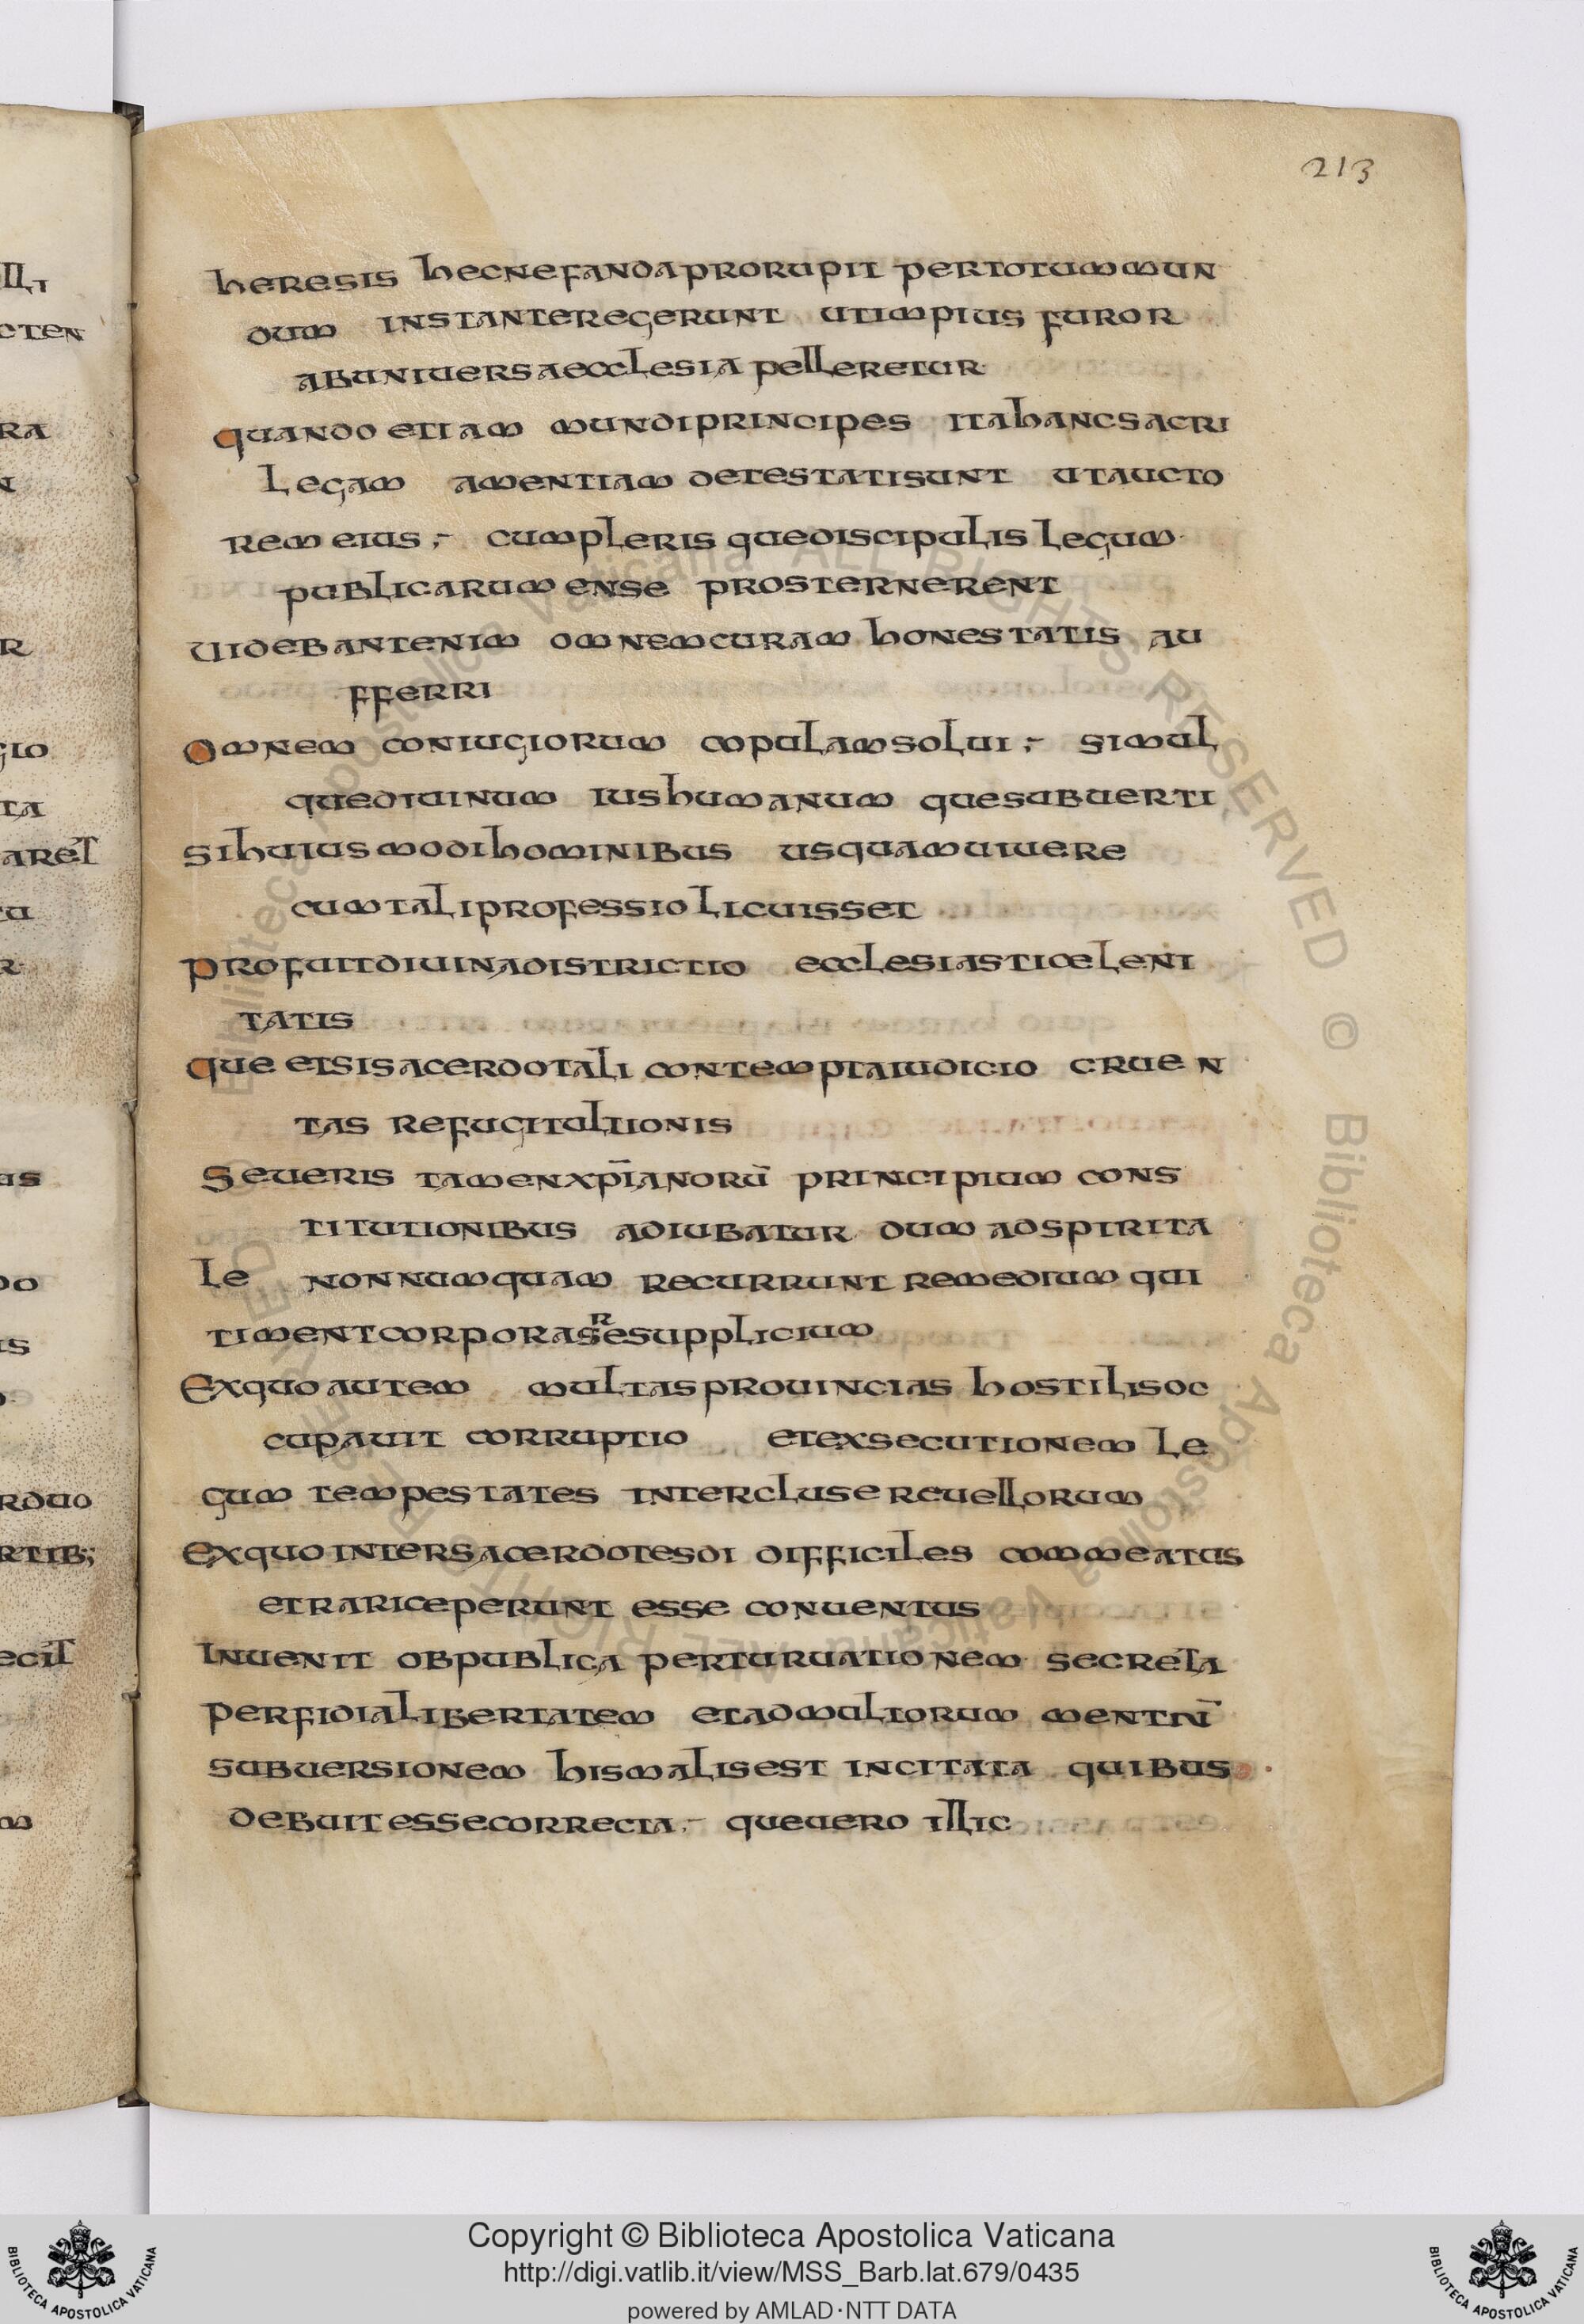 213
heresis hec nefanda prorupit per totum mun
dum instanter egerunt ut impius furor
ab universa ecclesia pelleretur
quando etiam mundi principes ita hanc sacri
legam amentiam detestati sunt ut aucto
rem eius cum pleris que discipulis legum
publicarum ense prosternerent
Uidebant enim omnem curam honestatis au
fferri
Omnem coniugiorum copulam solui simul
que diuinum ius humanum que subuerti
si huius modi hominibus usquam uiuere
cum tali professio licuisset
profuit diuina districtio ecclesiastice leni
tatis
que etsi sacerdotali contempta iudicio cruen
tas refugit ultionis
Seueris tamen xp̄ianorū principium cons
titutionibus adiubatur dum ad spirita
le nonnumquam recurrunt remedium qui
timent corporasre supplicium
Exquo autem multas prouincias hostilis oc
cupauit corruptio et exsecutionem le
gum tempestates intercluse reuellorum
Exquo inter sacerdotes di difficiles commeatus
et rari ceperunt esse conuentus
Inuenit ob publica perturuationem secreta
perfidia libertatem et ad multorum mentiū
subuersionem his malis est incitata quibus
debuit esse correcta que uero illic
Copyright © Biblioteca Apostolica Vaticana
http://digi.vatlib.it/view/MSS_Barb.lat.679/0435
powered by AMLAD·NTT DATA